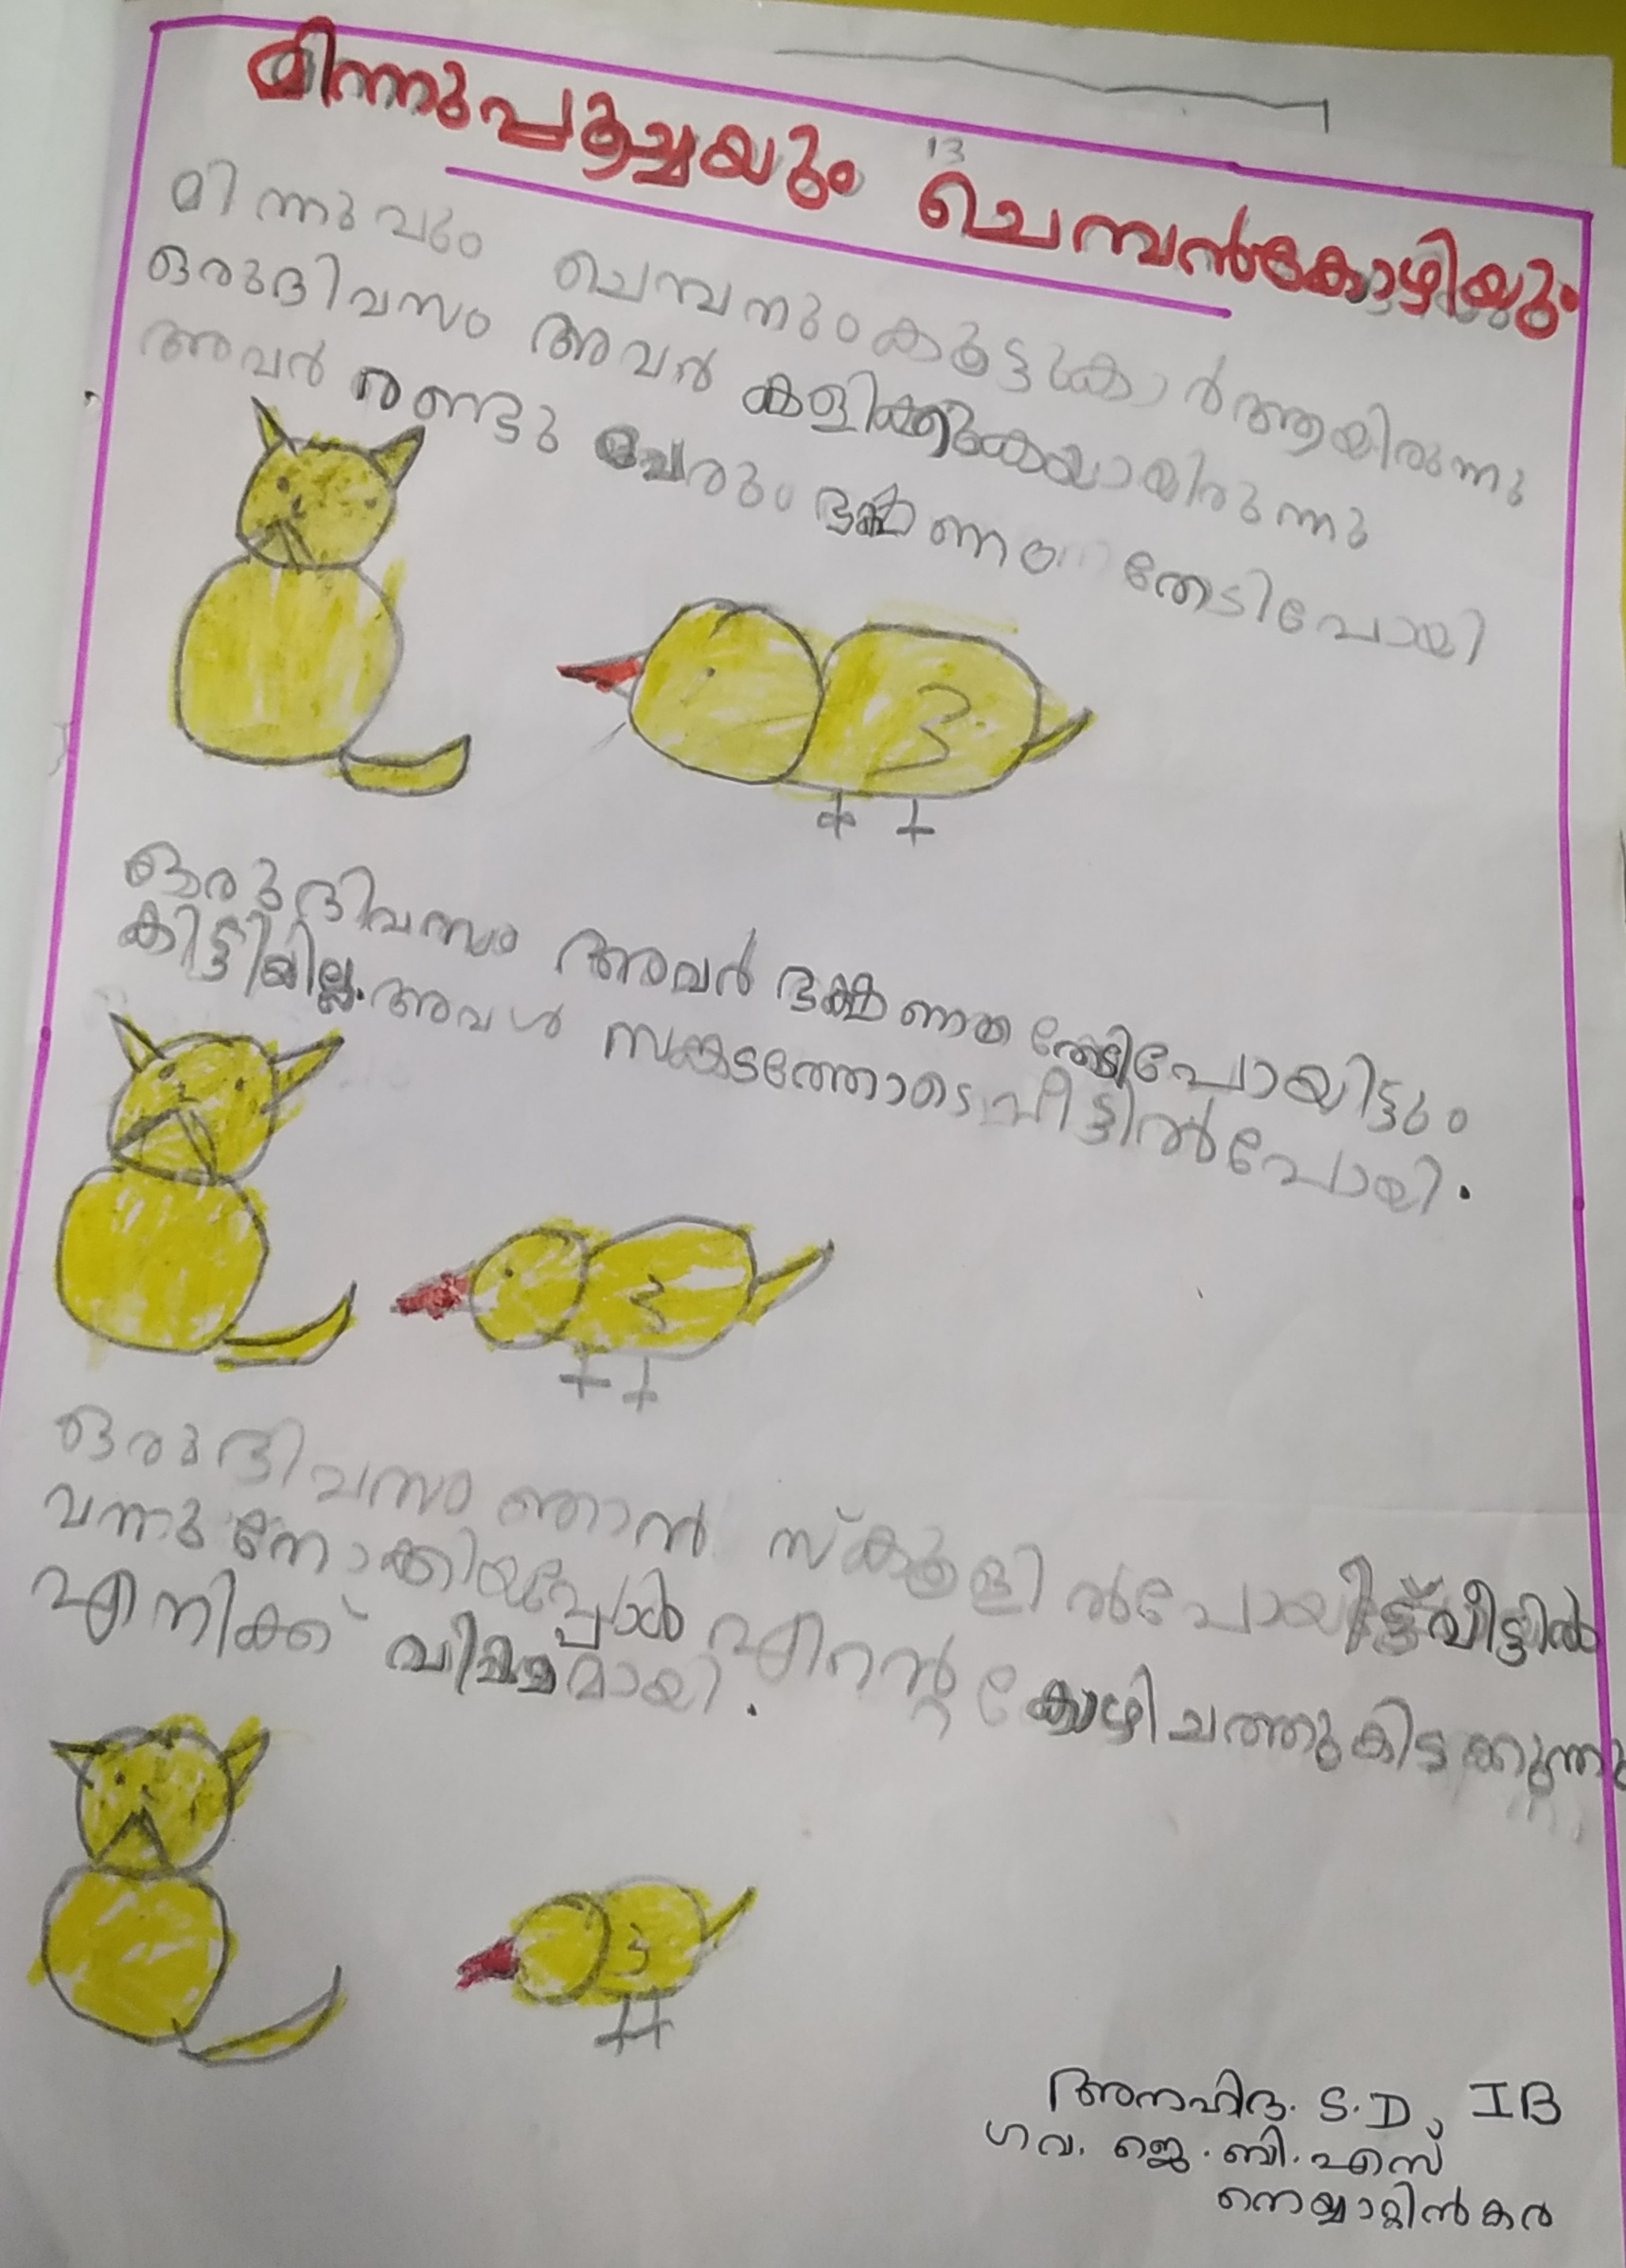 മിന്നുപൂച്ചയും ചെമ്പൻകോഴിയും
13
മിന്നുവും ചെമ്പനും കൂട്ടുകാർ ആയിരുന്നു
ഒരുദിവസം അവർ കളിക്കുകയായിരുന്നു
അവർ രണ്ടു പേരും ഭക്ഷണം തേടിപോയി
ഒരുദിവസം അവർ ഭക്ഷണം തേടിപോയിട്ടും
കിട്ടിയില്ല. അവൾ സങ്കടത്തോടെ വീട്ടിൽപോയി.
ഒരുദിവസം ഞാൻ സ്കൂളിൽപോയിട്ട് വീട്ടിൽ
വന്നുനോക്കിയപ്പോൾ എന്റെ കോഴി ചത്തുകിടക്കുന്നു
എനിക്ക് വിഷമമായി.
അനഹിദ. S.D, IB
ഗവ. ജെ.ബി.എസ്
നെയ്യാറ്റിൻകര